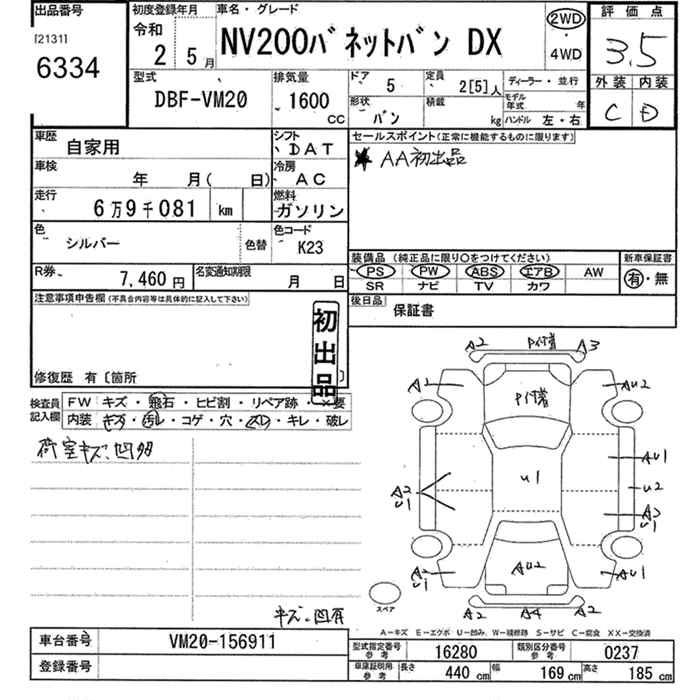 出品番号
[2131]
6334
初度登録年月
令和
2 5月
車名・グレード
NV200バネットバン DX
2WD
・
4WD
評価点
3.5
外装 内装
C D
型式
DBF-VM20
排気量
1600
CC
ドア
5
定員
2[5]人
ディーラー・並行
形状
バン
積載
kg
モデル年式 年
ハンドル 左・右
車歴
自家用
シフト
DAT
車検
年 月( 日)
冷房
AC
走行
6万9千081 km
燃料
ガソリン
色
シルバー
色替
色コード
K23
R券
7,460円
名変通知期限
月 日
セールスポイント(正常に機能するものに限ります)
★ AA初出品
装備品 (純正品に限り○をつけてください)
PS PW ABS エアB AW
SR ナビ TV カワ
新車保証書
有・無
後日品
保証書
注意事項申告欄(不具合内容等は具体的に記入して下さい)
初出品
修復歴 有〔箇所 〕
検査員
記入欄
FW キズ・飛石・ヒビ割・リペア跡・×要
内装 キズ・汚レ・コゲ・穴・スレ・キレ・破レ
荷室キズ、凹多
キズ、凹有
A2 P付着 A3
A2 P付着 AU2
AU1
U1
U2
A2
U1
A3
U1
A2
U1
AU2
AU1
A2 A4 A2
スペア
A-キズ E-エクボ U-凹み W-補修跡 S-サビ C-腐食 XX-交換済
車台番号
VM20-156911
登録番号
型式指定番号
参考
16280
類別区分番号
参考
0237
車庫証明用
参考
長さ 440 cm 幅 169 cm 高さ 185 cm